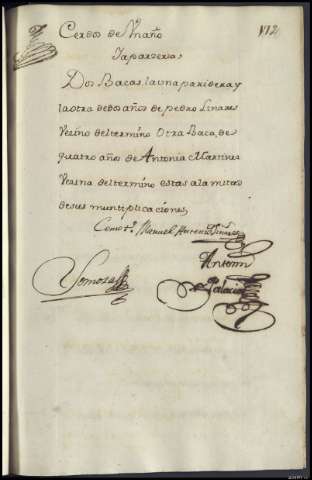 VI2
Cerdos de Un año
Iaparzeros
Dos Bacas, launa paridera y
laotra dedos años de pedro Linares
Vezino deltermino Otra Baca, de
quatro años de Antonia Martines
Vezina deltermino estas ala mitad
desus muntiplicaciones,
Como tº. Manuel
Antonio
de Palacio
Somoza